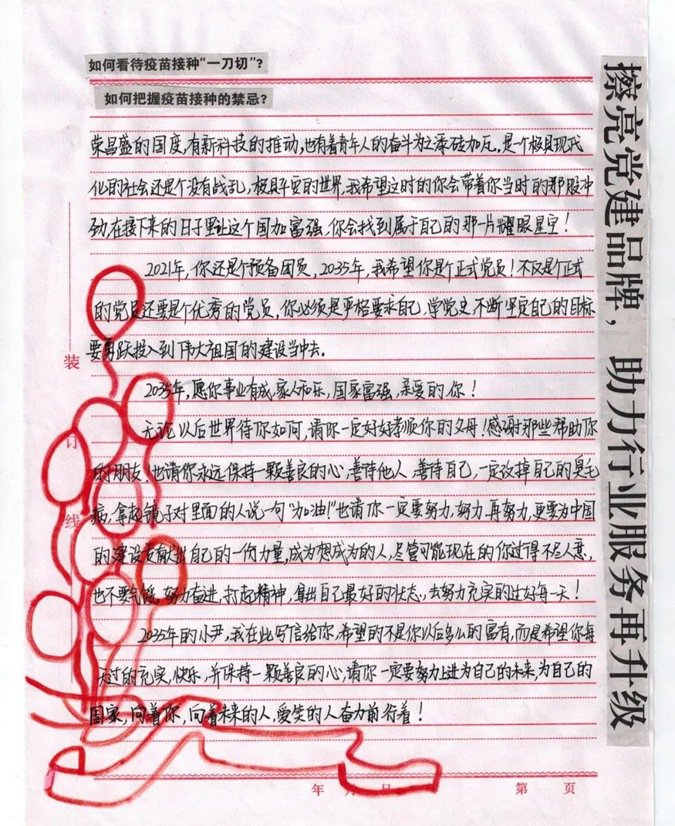 如何看待疫苗接种“一刀切”?
如何把握疫苗接种的禁忌?
荣昌盛的国度,有新科技的推动,也有着青年人的奋斗为之添砖加瓦,是个极具现代
化的社会还是个没有战乱,极具平安的世界,我希望这时的你会带着你当时的那股冲
劲,在接下来的日子里让这个国加富强,你会找到属于自己的那一片耀眼星空!
2021年,你还是个预备团员,2035年,我希望你是个正式党员!不仅是个正式
的党员还要是个优秀的党员,你必须是严格要求自己,学党史,不断坚定自己的目标
要勇跃投入到伟大祖国的建设当中去。
2035年,愿你事业有成,家人和乐,国家富强,亲爱的你!
无论以后世界待你如何,请你一定好好孝顺你的父母!感谢那些帮助你
的朋友!也请你永远保持一颗善良的心,善待他人,善待自己,一定改掉自己的臭毛
病,拿起镜子对里面的人说一句“加油!”也请你一定要努力,努力,再努力,更要为中国
的建设贡献出自己的一份力量,成为想成为的人,尽管可能现在的你过得不尽人意,
也不要气馁,努力奋进,打起精神,拿出自己最好的状态,去努力充实的过好每一天!
2035年的小尹,我在此写信给你,希望的不是你以后多么的富有,而是希望你每
天过的充实,快乐,并保持一颗善良的心,请你一定要努力上进为自己的未来为自己的
国家,向着你,向着未来的人,爱笑的人奋力前行着!
年 月 日 第 页
装
订
线
擦亮党建品牌,助力行业服务再升级